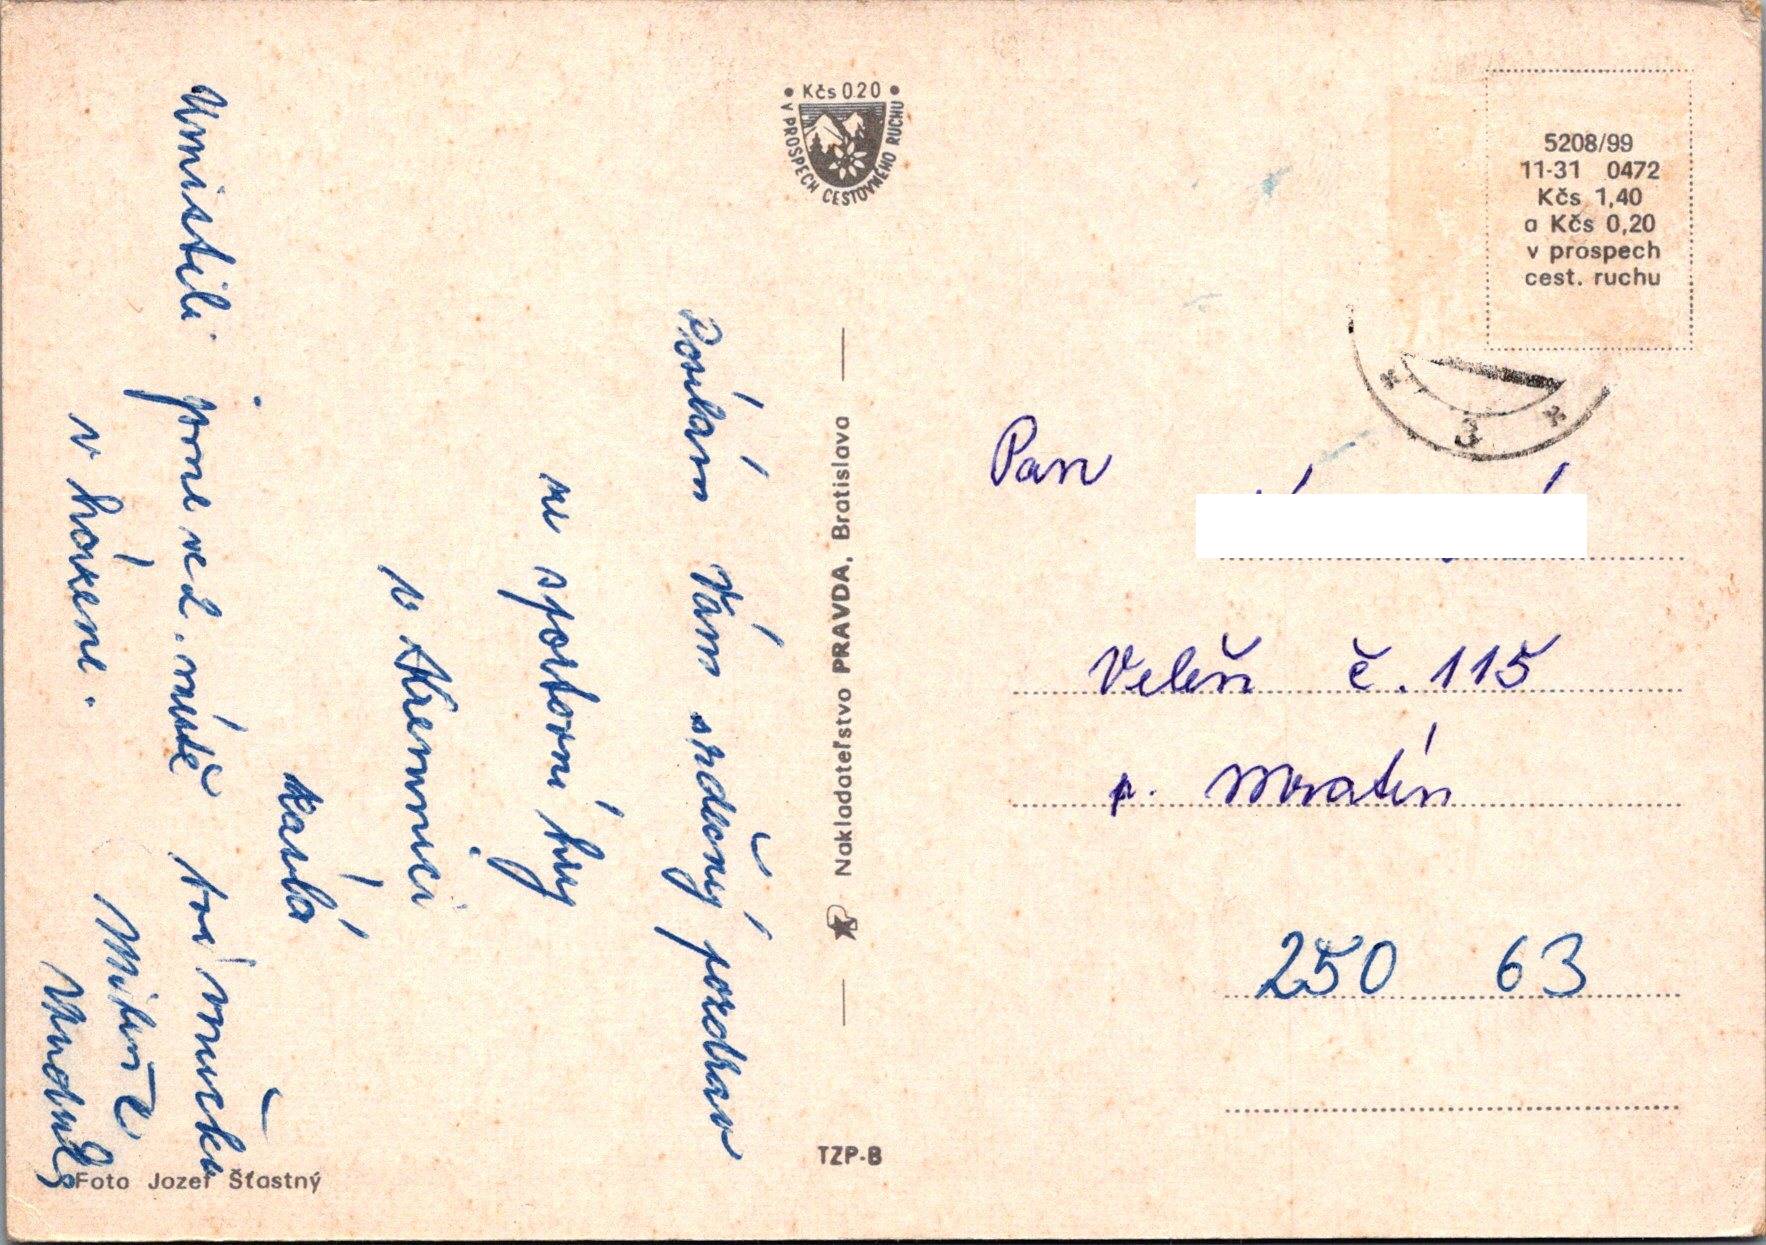 Kčs 0.20
V PROSPECH CESTOVNÉHO RUCHU
5208/99
11-31 0472
Kčs 1,40
a Kčs 0,20
v prospech
cest. ruchu
3
Pan
Veleň č. 115
p. Mratín
250 63
Posílám Vám srdečný pozdrav
ze sportovní hry
v Kremnici
Umístili jsme se 2. místě
v házené.
Nakladateľstvo PRAVDA, Bratislava
TZP-B
Foto Jozef Šťastný